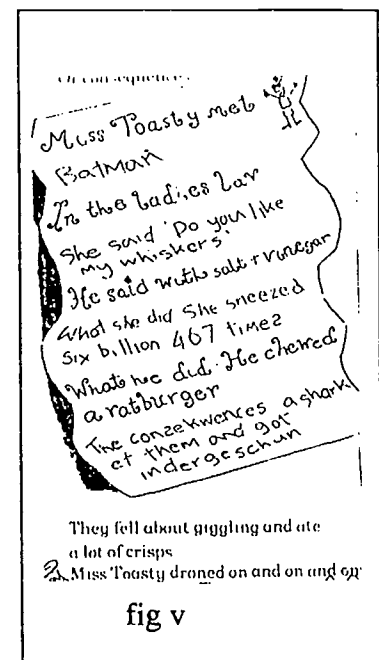 Of consequences
Miss Toasty met
BatMan
In the Ladies Lav
She said 'Do you like
my whiskers'
He said with salt + vinegar
What she did She sneezed
Six billion 467 times
What he did. He chewed
a ratburger
The conzekwences a shark
et them and got
indergeschun
They fell about giggling and ate
a lot of crisps
Miss Toasty droned on and on and on
fig v